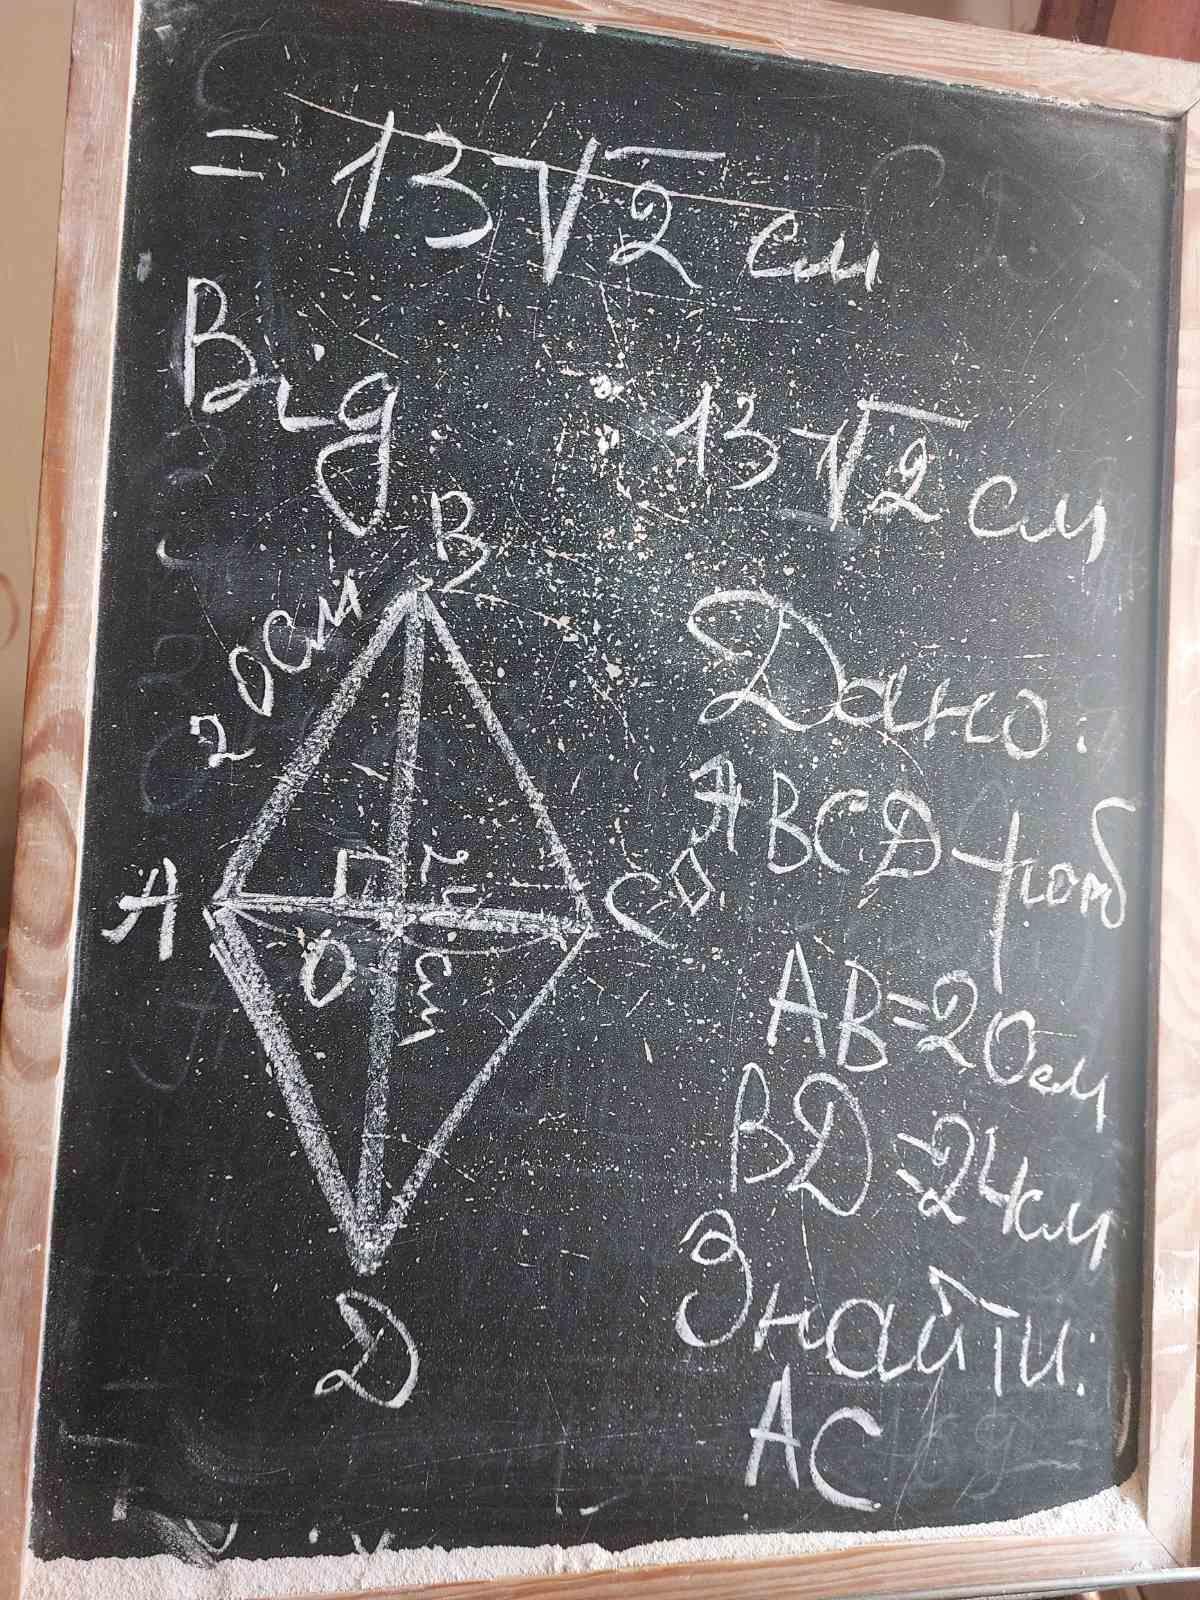 = 13√2 см
Від 13√2 см
B
20см
Дано:
A
ABCD ромб
O
24см
C
AB=20см
BD=24см
Знайти:
D
AC